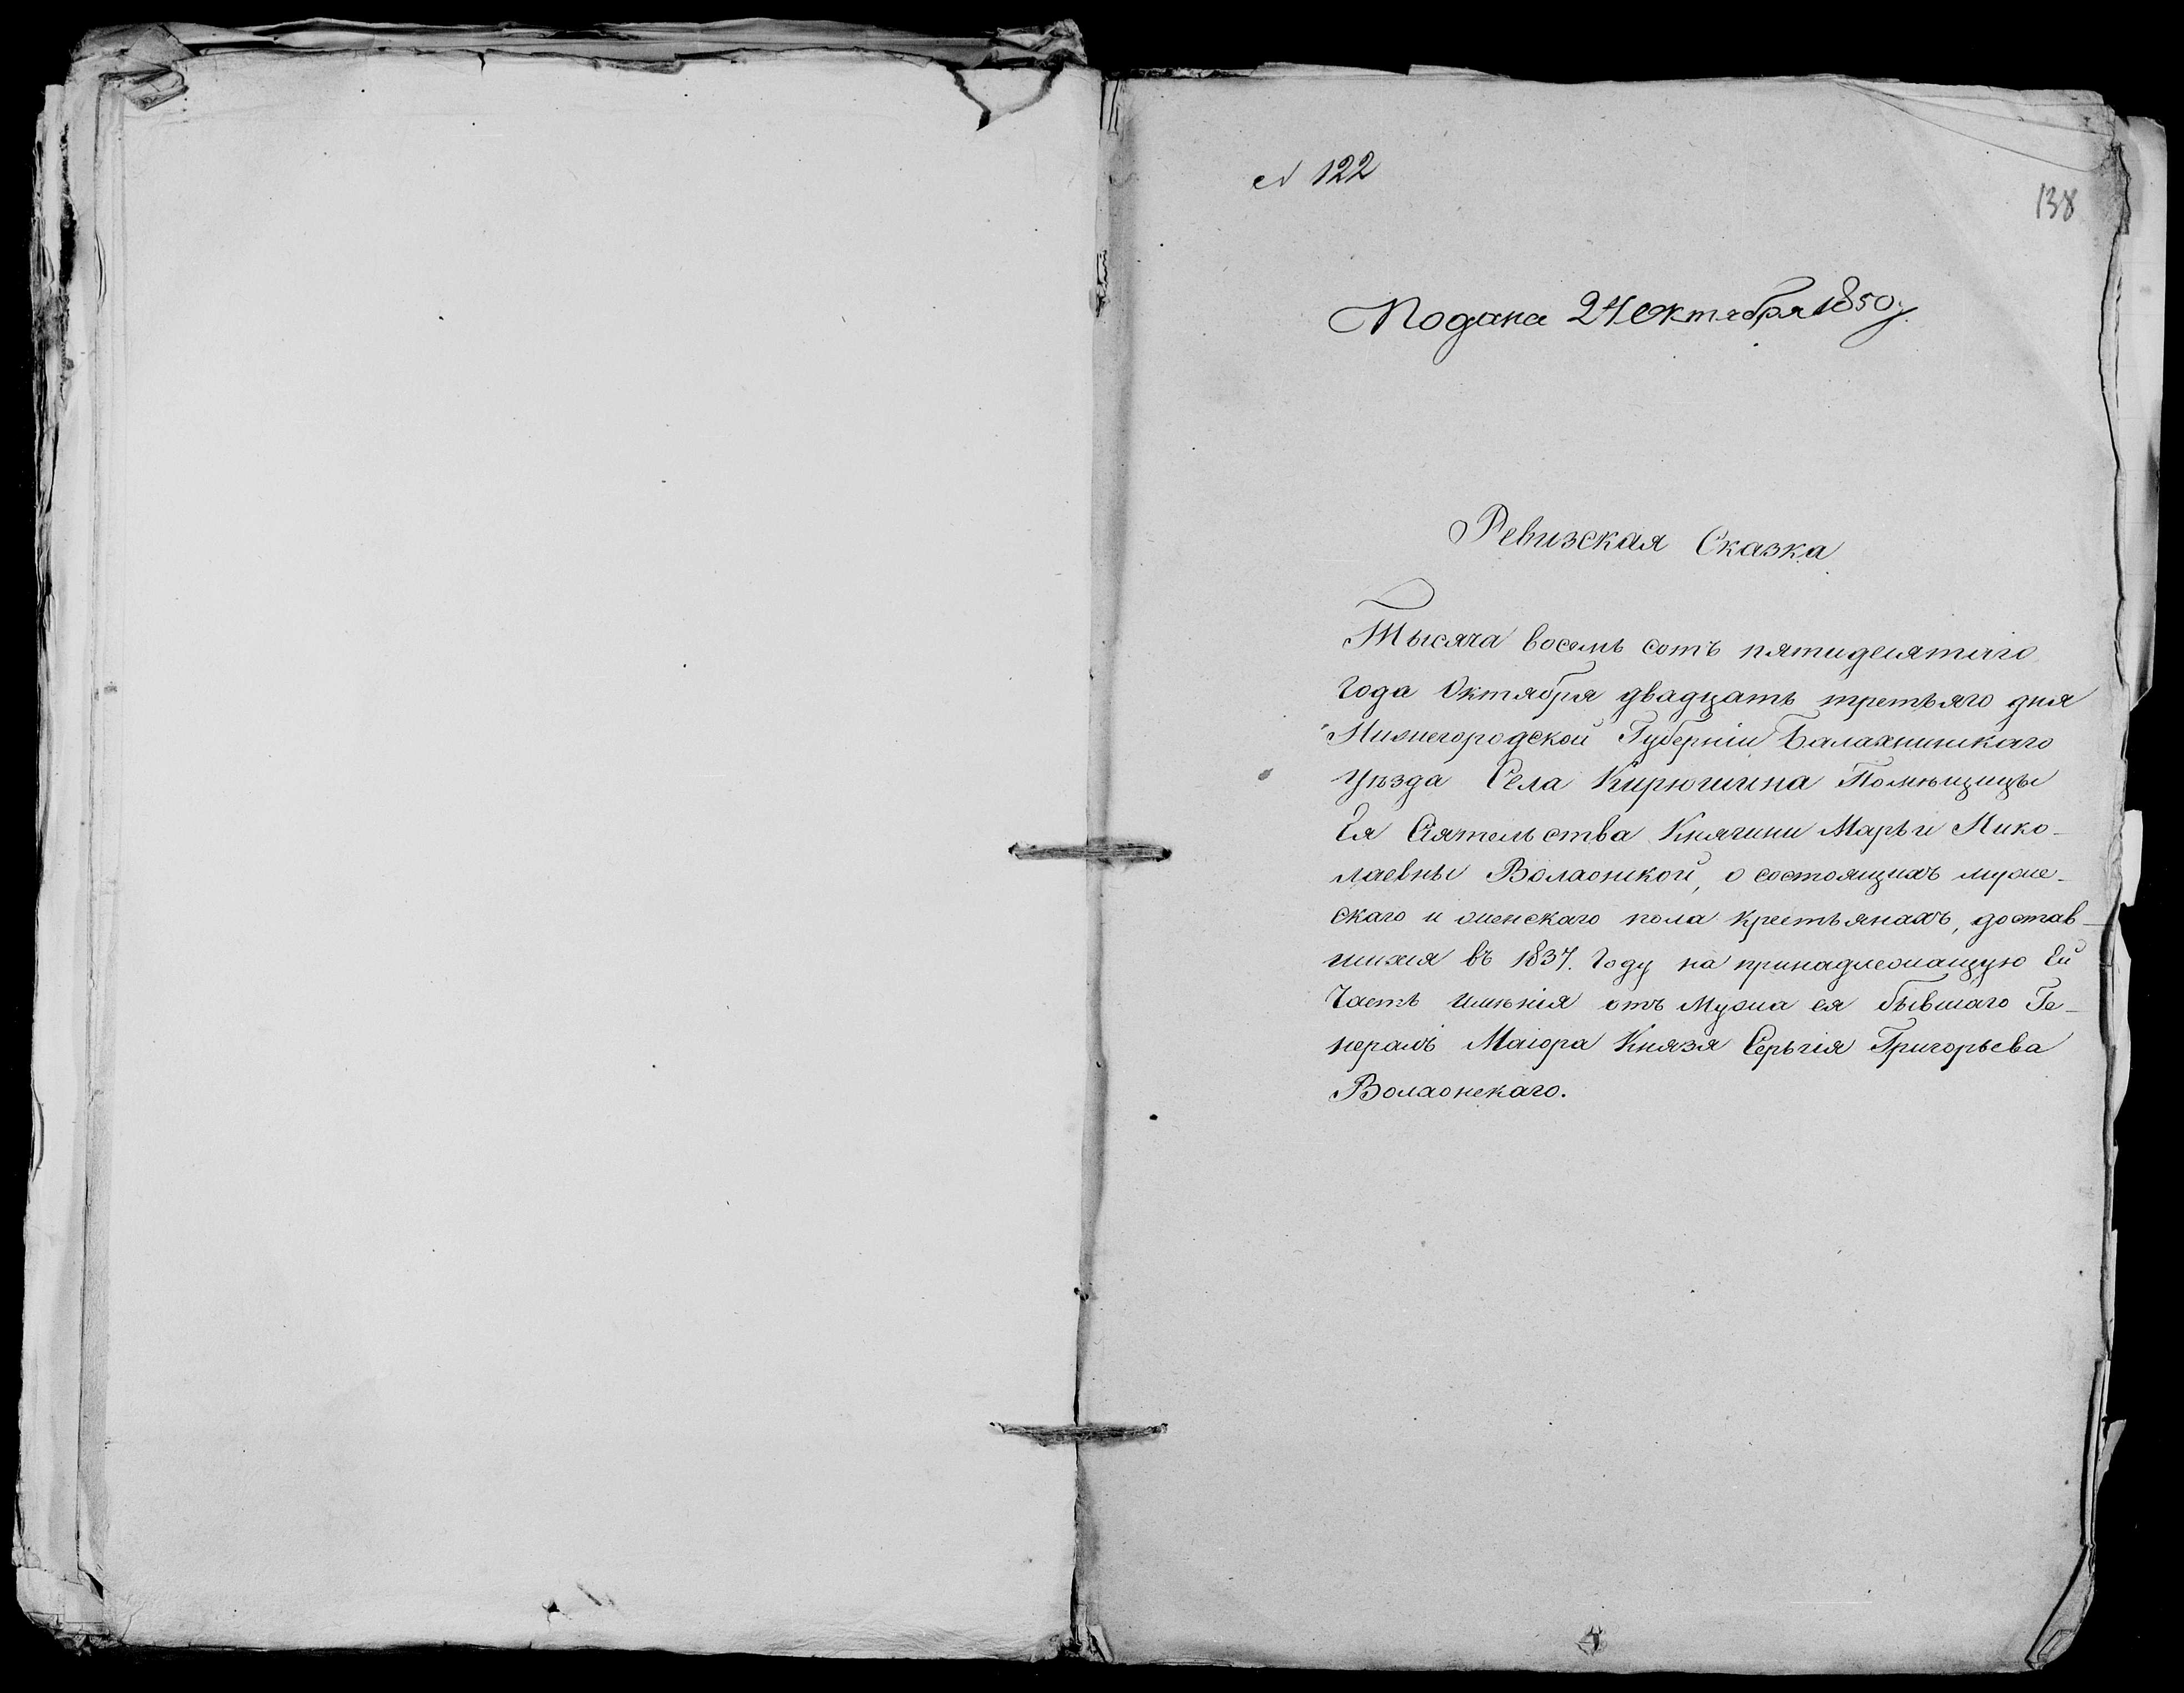 № 122
138
Подана 24 Октября 1850 г.
Ревизская Сказка
Тысяча восемь сотъ пятидесятаго
года Октября двадцать третьяго дня
Нижегородской Губерніи Балахнинскаго
уѣзда Села Кирюшина Помѣщицы
Ея Сіятельства Княгини Марьи Нико-
лаевны Волхонской, о состоящихъ муже-
скаго и женскаго пола крестьянахъ, достав-
шихся въ 1837. Году на принадлежащую Ей
Часть имѣнія отъ Мужа ея бывшаго Ге-
нералъ Маіора Князя Сергія Григорьева
Волхонскаго.